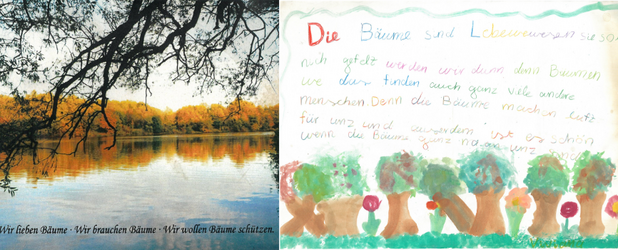 Wir lieben Bäume · Wir brauchen Bäume · Wir wollen Bäume schützen.
Die Bäume sind Lebewesen sie so
nich
werden wir
den Bäumen
we das finden auch ganz viele andere
menschen. Denn die Bäume machen luft
für unz und auserdem ist es schön
wenn die Bäume ganz